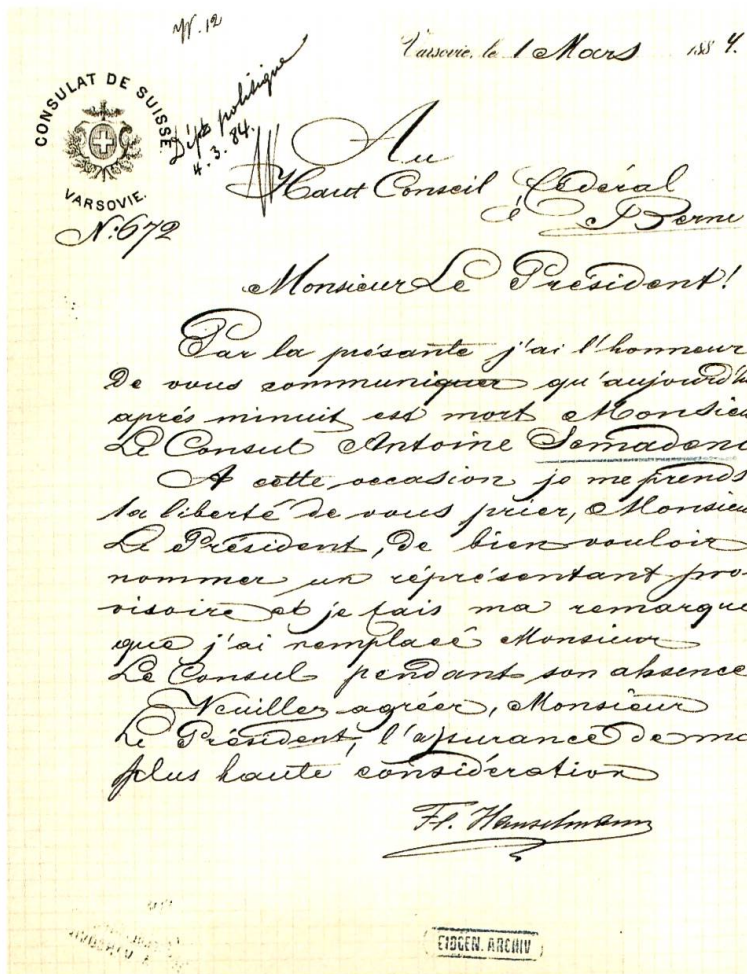 N. 12
Varsovie, le 1 Mars 1884.
CONSULAT DE SUISSE
VARSOVIE.
Dépt politique
4. 3. 84.
Au
Haut Conseil Fédéral
à Berne
N: 672
Monsieur Le Président!
Par la présante j'ai l'honneur
De vous communiquer qu'aujourd'h
aprés minuit est mort Monsieu
Le Consul Antoine Semadeni
A cette occasion je me prends
la liberté de vous prier, Monsieu
Le Président, De bien vouloir
nommer un réprésentant pro-
visoire et je fais ma remarque
que j'ai remplacé Monsieur
Le Consul pendant son absence
Veuillez agréer, Monsieur
Le Président, l'assurance de ma
plus haute considération
Fl. Hanselmann
EIDGEN. ARCHIV